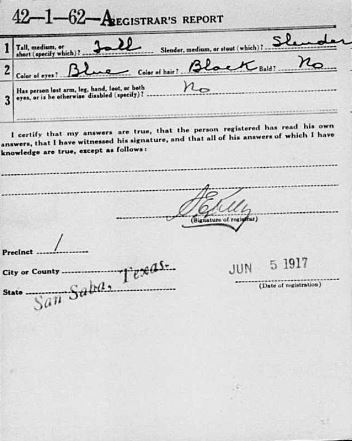 42-1-62-A REGISTRAR'S REPORT
1 Tall, medium, or short (specify which)? Tall Slender, medium, or stout (which)? Slender
2 Color of eyes? Blue Color of hair? Black Bald? No
3 Has person lost arm, leg, hand, foot, or both eyes, or is he otherwise disabled (specify)? No
I certify that my answers are true, that the person registered has read his own
answers, that I have witnessed his signature, and that all of his answers of which I have
knowledge are true, except as follows:
(Signature of registrar)
Precinct 1
City or County
State San Saba, Texas.
JUN 5 1917
(Date of registration)